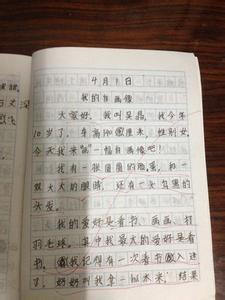 4月1日
我的自画像
大家好,我叫吴晶,我今年
10岁了,身高 厘米,性别女,
今天我来 一幅自画像吧!
我有一张圆圆的脸蛋,和一
双大大的眼睛,还有一头乌黑的
头发。
我的爱好是看书、画画、打
羽毛球,其中我最大的爱好是看
书。我记得有一次看书 入迷
了,妈妈叫我拿一 米来,结果